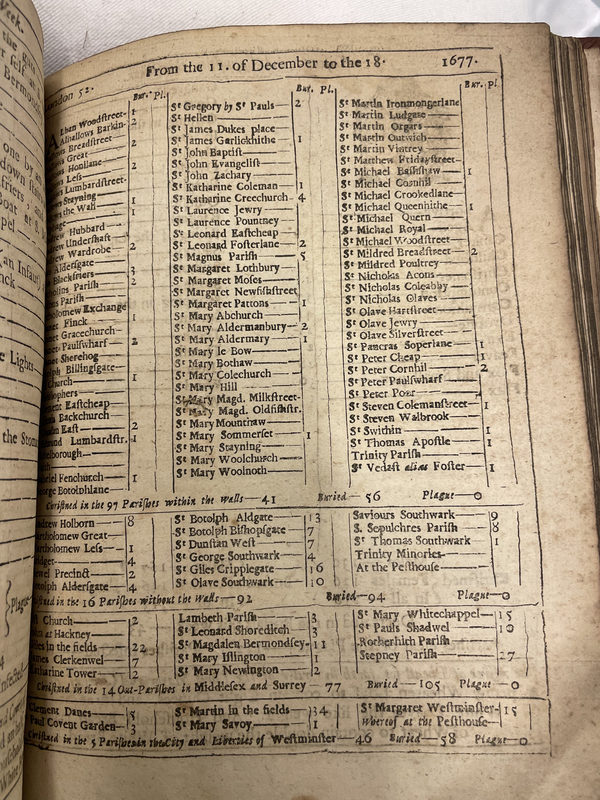 From the 11. of December to the 18. 1677.
London 52.
Bur. Pl.
Bur. Pl.
Bur. Pl.
Alban Woodstreet— 1
Alhallows Barkin— 2
Breadstreet— 2
Great—
Honilane— 2
Less—
Lumbardstreet-
Stayning— 1
the Wall— 1
Hubbard—
Undershaft—
Wardrobe— 2
Aldersgate—
Blackfriers— 3
Parish— 2
Parish—
Exchange
Finck— 1
Gracechurch—
Paulswharf— 2
Sherehog
Billingsgate—
Church— 1
Eastcheap
Backchurch—
East— 2
Lumbardstr. 1
Fenchurch— 1
Botolphlane—
St Gregory by St Pauls— 2
St Hellen—
St James Dukes place—
St James Garlickhithe— 1
St John Baptist—
St John Evangelist—
St John Zachary—
St Katharine Coleman— 1
St Katharine Creechurch— 4
St Laurence Jewry—
St Laurence Pountney—
St Leonard Eastcheap—
St Leonard Fosterlane— 2
St Magnus Parish— 5
St Margaret Lothbury—
St Margaret Moses—
St Margaret Newfishstreet
St Margaret Pattons— 1
St Mary Abchurch—
St Mary Aldermanbury— 2
St Mary Aldermary— 1
St Mary le Bow—
St Mary Bothaw—
St Mary Colechurch—
St Mary Hill—
St Mary Magd. Milkstreet-
St Mary Magd. Oldfishstr.
St Mary Mounthaw—
St Mary Sommerset— 1
St Mary Stayning—
St Mary Woolchurch—
St Mary Woolnoth—
St Martin Ironmongerlane
St Martin Ludgate—
St Martin Orgars—
St Martin Outwich—
St Martin Vintrey—
St Matthew Fridaystreet—
St Michael Bassishaw— 1
St Michael Cornhil—
St Michael Crookedlane—
St Michael Queenhithe— 1
St Michael Quern—
St Michael Royal—
St Michael Woodstreet—
St Mildred Breadstreet— 2
St Mildred Poultrey—
St Nicholas Acons—
St Nicholas Coleabby—
St Nicholas Olaves—
St Olave Hartstreet—
St Olave Jewry—
St Olave Silverstreet—
St Pancras Soperlane— 1
St Peter Cheap— 1
St Peter Cornhil— 2
St Peter Paulswharf—
St Peter Poor—
St Steven Colemanstreet— 1
St Steven Walbrook—
St Swithin— 1
St Thomas Apostle— 1
Trinity Parish—
St Vedast alias Foster— 1
Christned in the 97 Parishes within the Walls— 41 Buried— 56 Plague— 0
Andrew Holborn— 8
Bartholomew Great—
Bartholomew Less— 1
Bridget— 4
Bridewel Precinct— 2
Botolph Aldersgate— 4
St Botolph Aldgate— 13
St Botolph Bishopsgate— 7
St Dunstan West— 7
St George Southwark— 4
St Giles Cripplegate— 16
St Olave Southwark— 10
Saviours Southwark— 9
S. Sepulchres Parish— 8
St Thomas Southwark— 1
Trinity Minories—
At the Pesthouse—
Christned in the 16 Parishes without the Walls— 92 Buried— 94 Plague— 0
Church— 2
at Hackney—
in the fields— 22
James Clerkenwel— 7
Katharine Tower— 2
Lambeth Parish— 3
St Leonard Shoreditch— 3
St Magdalen Bermondsey- 11
St Mary Islington— 1
St Mary Newington— 2
St Mary Whitechappel— 15
St Pauls Shadwel— 10
Rotherhith Parish—
Stepney Parish— 27
Christned in the 14 Out-Parishes in Middlesex and Surrey— 77 Buried— 105 Plague— 0
Clement Danes— 5
Paul Covent Garden— 3
St Martin in the fields— 34
St Mary Savoy— 1
St Margaret Westminster- 15
Whereof at the Pesthouse—
Christned in the 5 Parishes in the City and Liberties of Westminster— 46 Buried— 58 Plague— 0